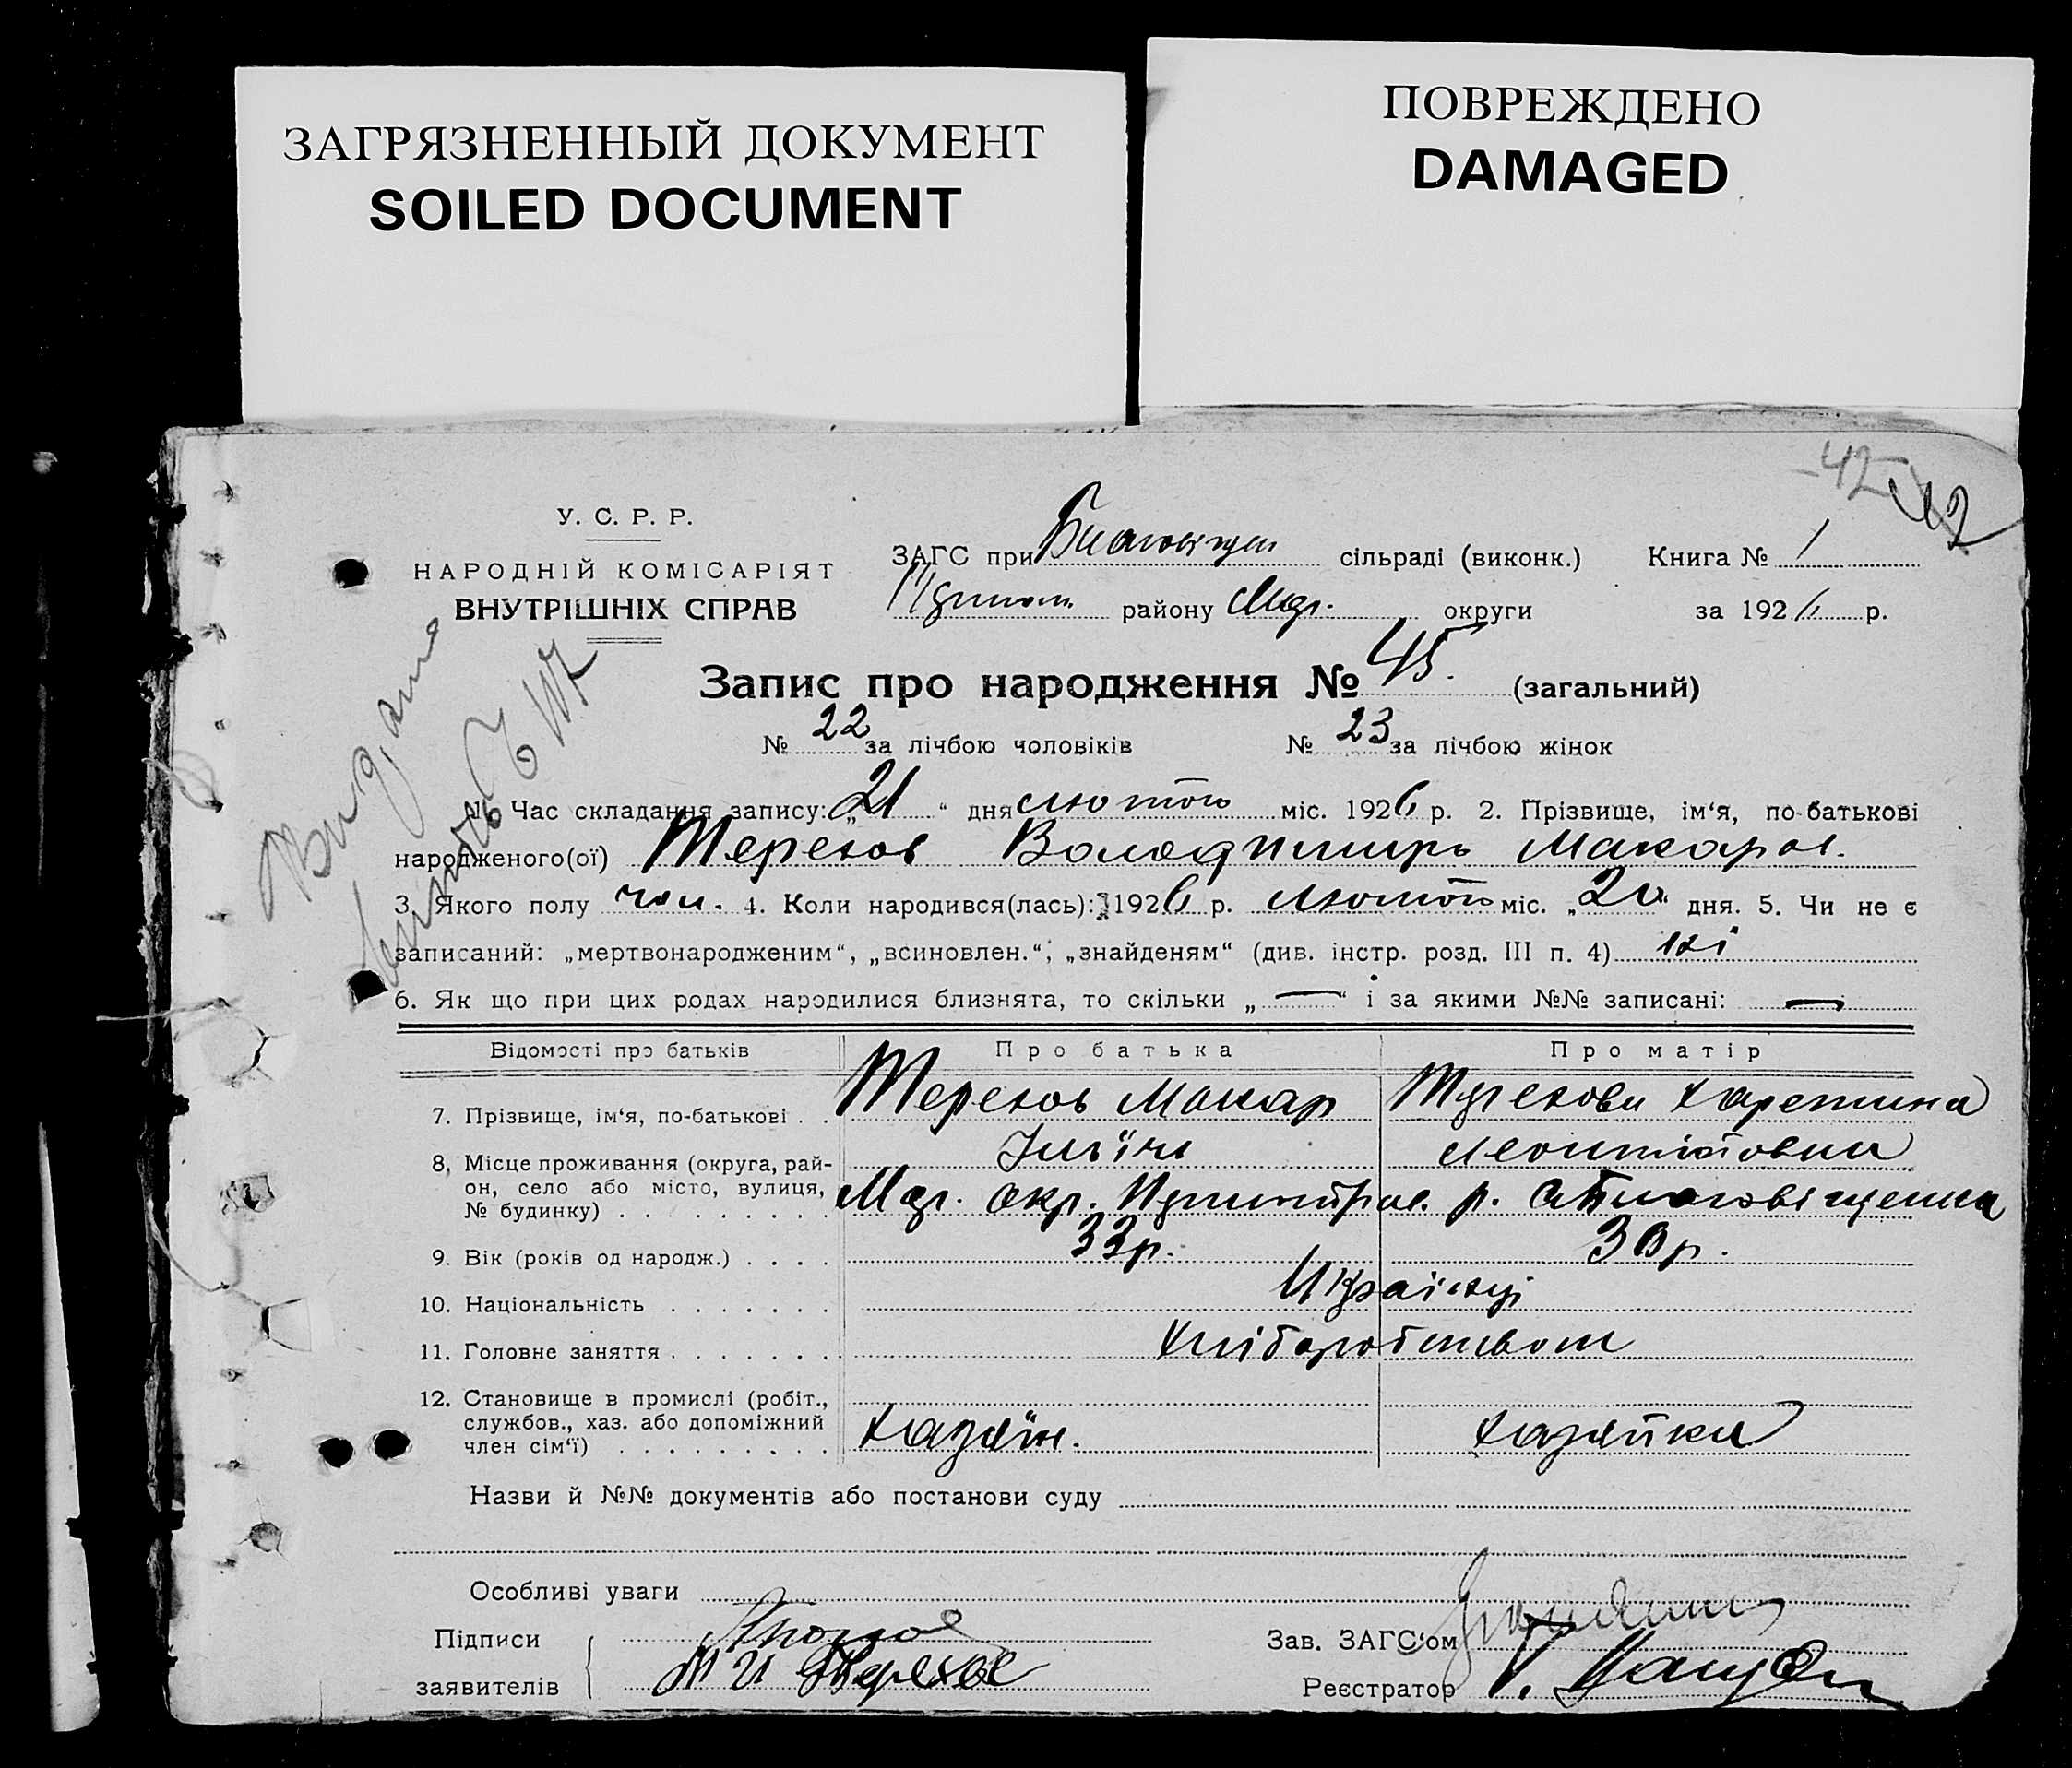 ЗАГРЯЗНЕННЫЙ ДОКУМЕНТ
SOILED DOCUMENT
ПОВРЕЖДЕНО
DAMAGED
42
У. С. Р. Р.
НАРОДНІЙ КОМІСАРІЯТ
ВНУТРІШНІХ СПРАВ
ЗАГС при сільраді (виконк.) Книга № 1
району округи за 1926 р.
Запис про народження № 45. (загальний)
№ 22 за лічбою чоловіків № 23 за лічбою жінок
1. Час складання запису: „21“ дня лютого міс. 1926 р. 2. Прізвище, ім‘я, по-батькові
народженого(ої) Терехов Володимиръ Макаров.
3. Якого полу чол. 4. Коли народився(лась): 1926 р. лютого міс. „20“ дня. 5. Чи не є
записаний: „мертвонародженим“, „всиновлен.“; „знайденям“ (див. інстр. розд. III п. 4) ні
6. Як що при цих родах народилися близнята, то скільки „—“ і за якими №№ записані: —
Відомості про батьків Про батька Про матір
7. Прізвище, ім‘я, по-батькові Терехов Макар
Ілліч
8. Місце проживання (округа, рай-
он, село або місто, вулиця,
№ будинку) окр. р.
9. Вік (років од народж.) 33 р. 30 р.
10. Національність Українці
11. Головне заняття Хліборобством
12. Становище в промислі (робіт.,
службов., хаз. або допоміжний
член сім‘ї) Хазяїн. Хазяйка
Назви й №№ документів або постанови суду
Особливі уваги
Підписи
заявителів М И Терехов
Зав. ЗАГС‘ом
Реєстратор